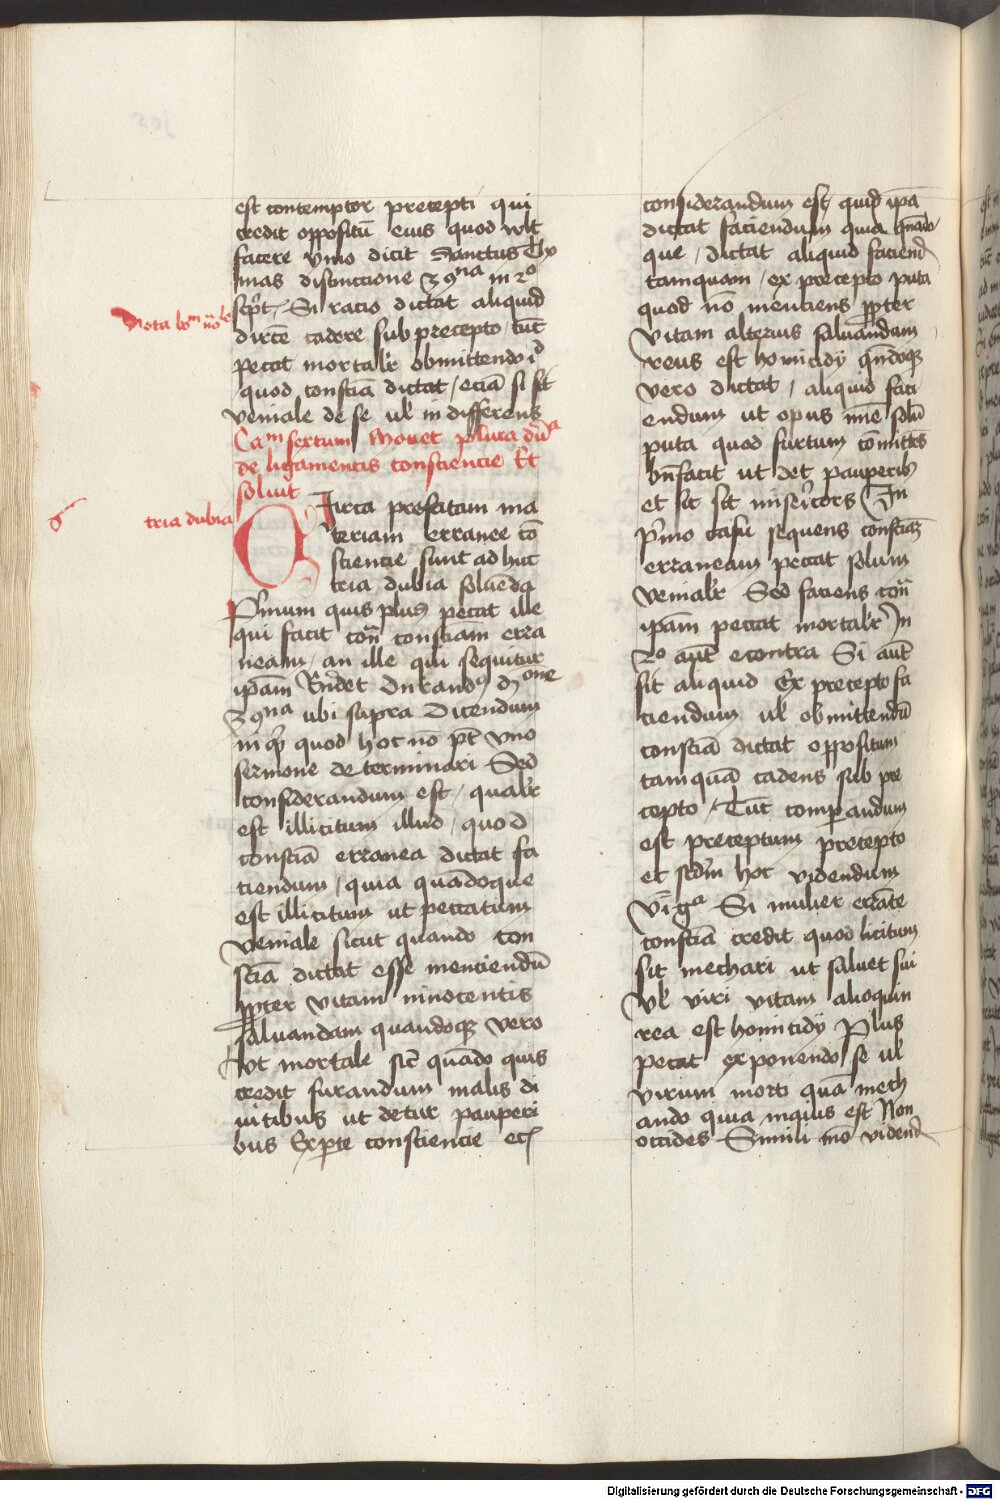 est contemptor precepti qui
credit oppositū eius quod vult
facere ymo dicit Sanctus Tho
mas distinccione 39na in 2o
script. Si racio dictat aliquid
dircē cadere sub precepto / tūc
peccat mortalr obmittendo id
quod consciā dictat / eciā si sit
veniale de se ul indifferens
Nota bom
Cam sextum Mouet plura dubia
de ligamentis consciencie Et
soluit
6
tria dubia
Circa prefatam ma
teriam erranee cō
sciencie sunt ad huc
tria dubia soluēda
Prmum quis plus peccat ille
qui facit cont consciam erra
neam / an ille qui sequitur
ipām Rndet Durand9 done
39na ubi supra Dicendum
in qp quod hoc nō pt vno
sermone determinari Sed
considerandum est / qualr
est illicitum illud / quod
consciā erronea dictat fa
ciendum / quia quādoque
est illicitum ut peccatum
veniale sicut quando con
sciā dictat esse menciendū
ppter vitam innocentis
saluandam quandoq vero
ut mortale sic quādo quis
credit furandum malis di
uitibus ut detur pauperi
bus Ex pte consciencie ecā
considerandum est / quid ipā
dictat faciendum quia qnādo
que / dictat aliquid faciend
tamquam / ex precepto puta
quod nō menciens ppter
vitam alterius saluandam
reus est homicidy qndoq
vero dictat / aliquid faci
endum ut opus mīe solū
puta quod furtum cōmittēs
bnfacit ut det pauperib
et sic sit misericors In
prmo casu sequens consciā
erraneam peccat solum
venialr Sed faciens cont
ipām peccat mortalr In
2o aūt econtra Si aūt
sit aliquid Ex precepto fa
ciendum ul obmittendū
consciā dictat oppositum
tamquā cadens sub pre
cepto / Tūc comparandum
est preceptum precepto
et scdm hoc videndum
Vi ga Si mulier errāte
consciā credit quod licitum
sit mechari ut saluet sui
ul viri vitam alioquin
rea est homicidy Plus
peccat exponendo se ul
virum morti quā mech
ando quia maius est Non
occides Simili mō vidend
Digitalisierung gefördert durch die Deutsche Forschungsgemeinschaft - DFG